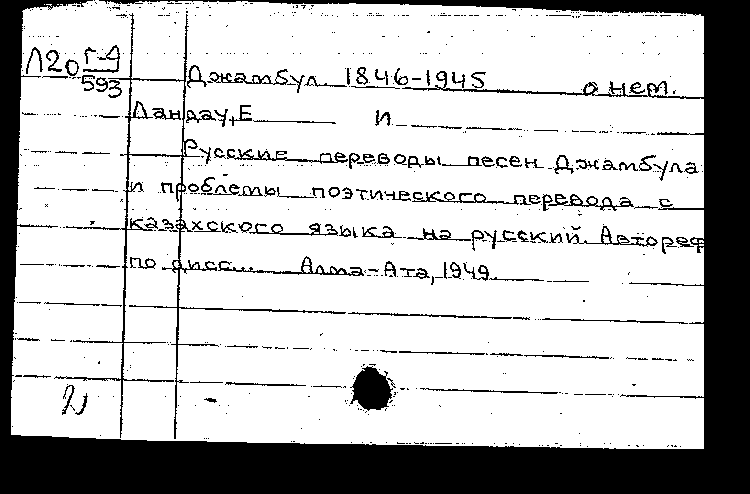 Л20 Г-Д
593
Джамбул. 1846-1945 о нем.
Ландау, Е И
Русские переводы песен Джамбула
и проблемы поэтического перевода с
казахского языка на русский. Автореф
по дисс... Алма-Ата, 1949.